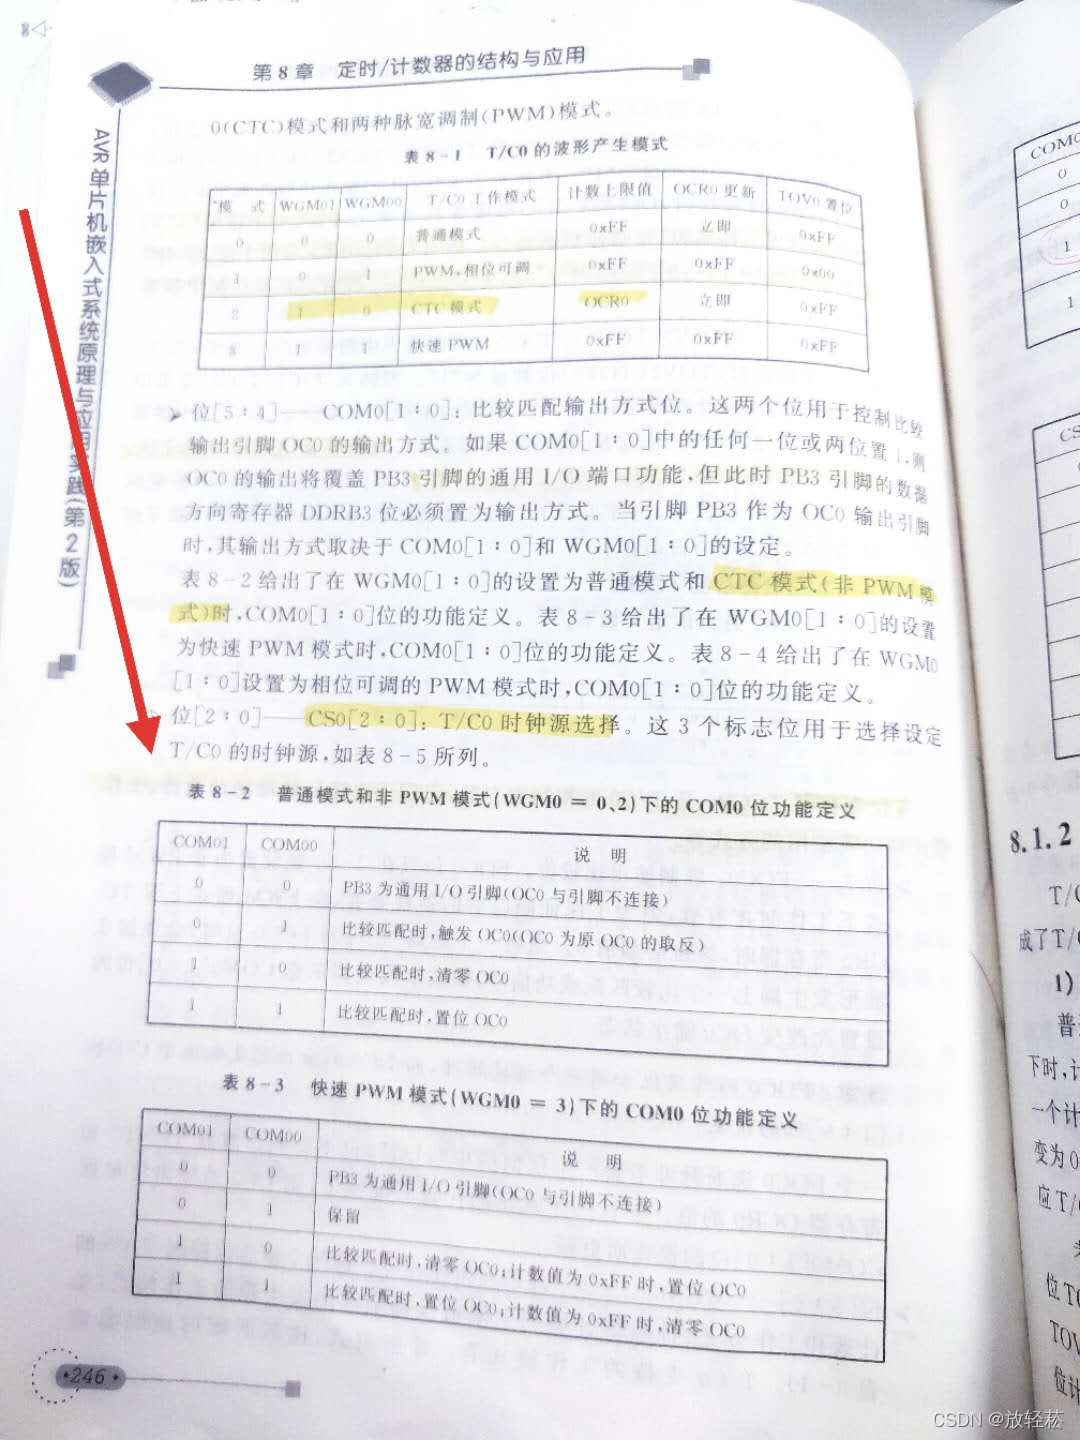 第8章 定时/计数器的结构与应用
AVR单片机嵌入式系统原理与应用实践(第2版)
0(CTC)模式和两种脉宽调制(PWM)模式。
表 8-1 T/C0 的波形产生模式
模 式 WGM01 WGM00 T/C0 工作模式 计数上限值 OCR0 更新 TOV0 置位
0 0 0 普通模式 0xFF 立即 0xFF
1 0 1 PWM,相位可调 0xFF 0xFF 0x00
2 1 0 CTC 模式 OCR0 立即 0xFF
3 1 1 快速 PWM 0xFF 0xFF 0xFF
➤ 位[5:4]——COM0[1:0]:比较匹配输出方式位。这两个位用于控制比较
输出引脚 OC0 的输出方式。如果 COM0[1:0]中的任何一位或两位置 1,则
OC0 的输出将覆盖 PB3 引脚的通用 I/O 端口功能,但此时 PB3 引脚的数据
方向寄存器 DDRB3 位必须置为输出方式。当引脚 PB3 作为 OC0 输出引脚
时,其输出方式取决于 COM0[1:0]和 WGM0[1:0]的设定。
表 8-2 给出了在 WGM0[1:0]的设置为普通模式和 CTC 模式(非 PWM 模
式)时,COM0[1:0]位的功能定义。表 8-3 给出了在 WGM0[1:0]的设置
为快速 PWM 模式时,COM0[1:0]位的功能定义。表 8-4 给出了在 WGM0
[1:0]设置为相位可调的 PWM 模式时,COM0[1:0]位的功能定义。
➤ 位[2:0]——CS0[2:0]:T/C0 时钟源选择。这 3 个标志位用于选择设定
T/C0 的时钟源,如表 8-5 所列。
表 8-2 普通模式和非 PWM 模式(WGM0 = 0、2)下的 COM0 位功能定义
COM01 COM00 说 明
0 0 PB3 为通用 I/O 引脚(OC0 与引脚不连接)
0 1 比较匹配时,触发 OC0(OC0 为原 OC0 的取反)
1 0 比较匹配时,清零 OC0
1 1 比较匹配时,置位 OC0
表 8-3 快速 PWM 模式(WGM0 = 3)下的 COM0 位功能定义
COM01 COM00 说 明
0 0 PB3 为通用 I/O 引脚(OC0 与引脚不连接)
0 1 保留
1 0 比较匹配时,清零 OC0;计数值为 0xFF 时,置位 OC0
1 1 比较匹配时,置位 OC0;计数值为 0xFF 时,清零 OC0
·246·
COM0
0
0
1
1
CS
8.1.2
T/
成了T/
1)
普
下时,计
一个计
变为0
应T/
位T
TOV
位计
CSDN @放轻菘